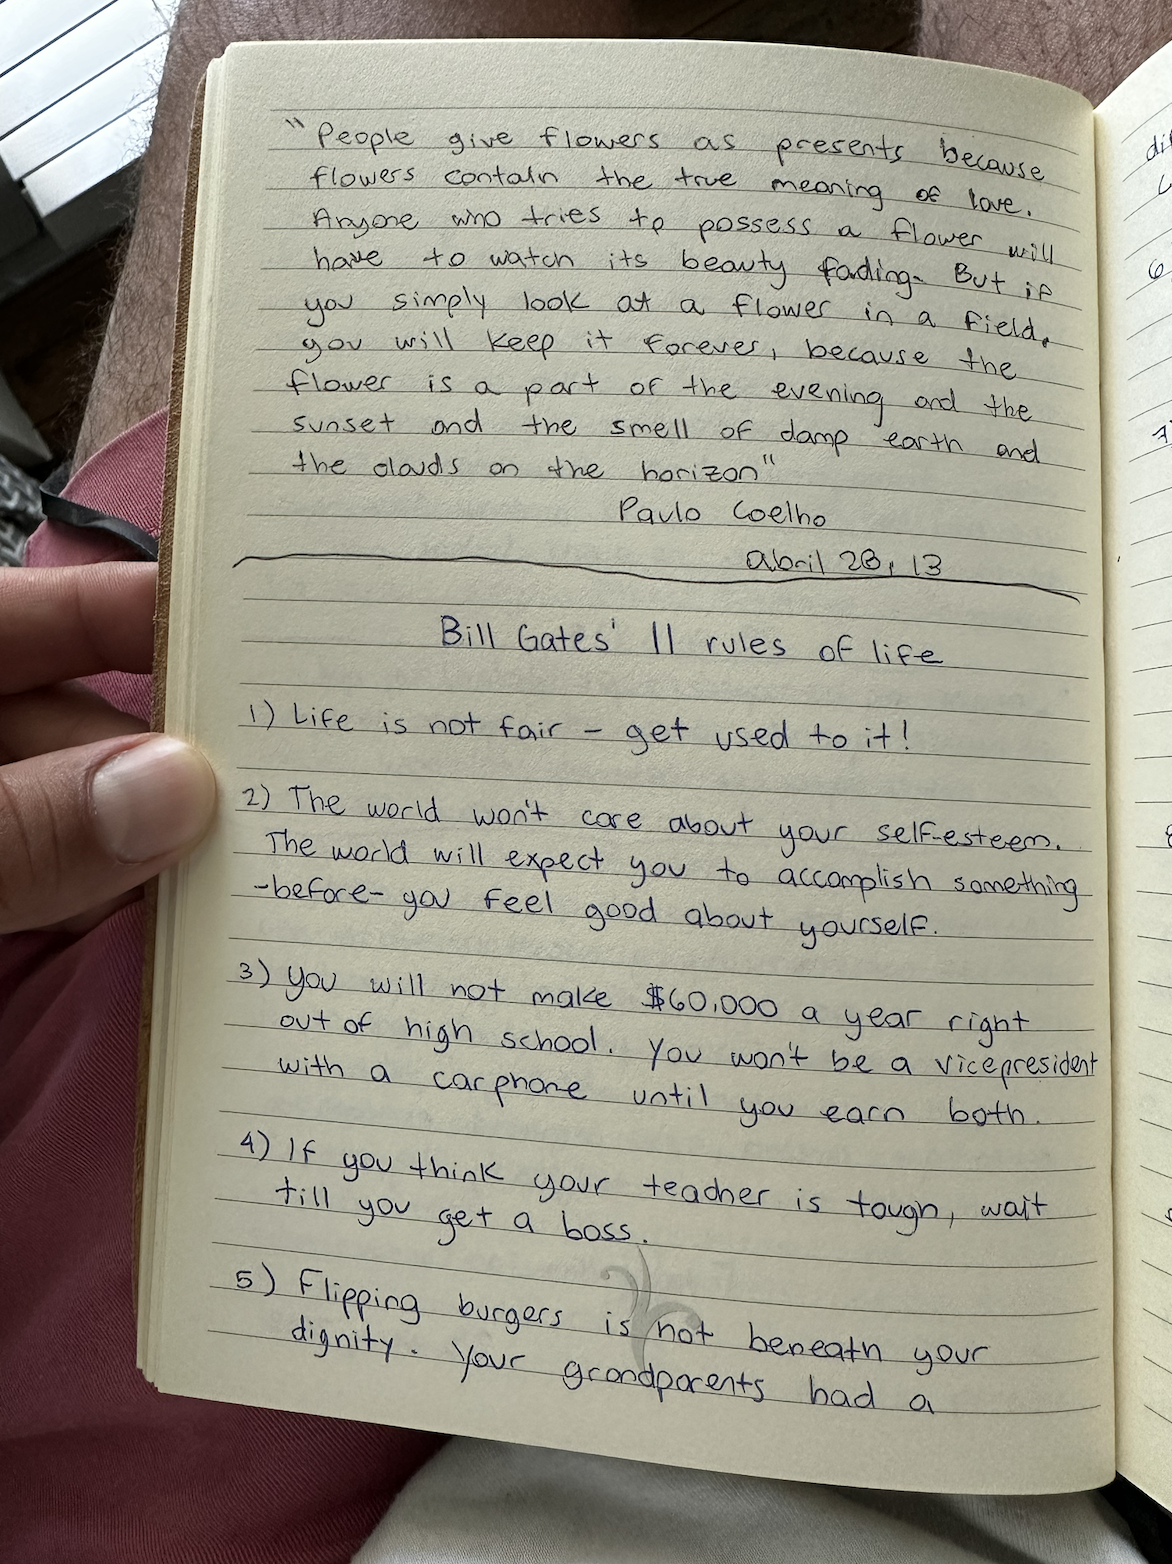 "People give flowers as presents because
flowers contain the true meaning of love.
Anyone who tries to possess a flower will
have to watch its beauty fading. But if
you simply look at a flower in a field,
you will keep it forever, because the
flower is a part of the evening and the
sunset and the smell of damp earth and
the clouds on the horizon"
Paulo Coelho
abril 28, 13
Bill Gates' 11 rules of life
1) Life is not fair - get used to it!
2) The world won't care about your self-esteem.
The world will expect you to accomplish something
-before- you feel good about yourself.
3) You will not make $60,000 a year right
out of high school. You won't be a vicepresident
with a carphone until you earn both.
4) If you think your teacher is tough, wait
till you get a boss.
5) Flipping burgers is not beneath your
dignity. Your grandparents had a
6
7)